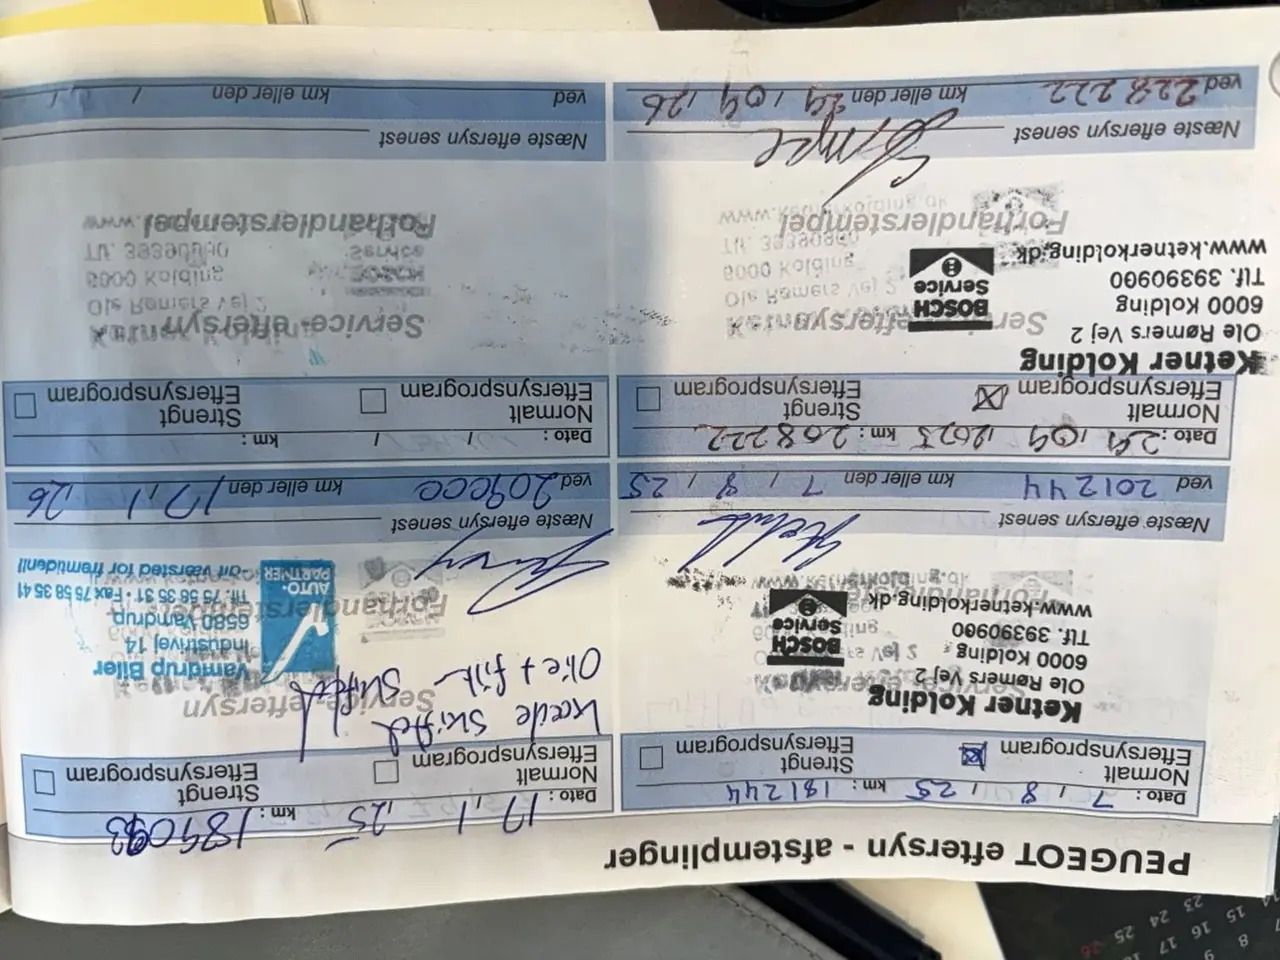 PEUGEOT eftersyn - afstemplinger
Dato : 7 / 8 / 25 km : 181244
Normalt Eftersynsprogram
Strengt Eftersynsprogram
Ketner Kolding
Ole Rømers Vej 2
6000 Kolding
Tlf. 39390900
www.ketnerkolding.dk
BOSCH
Service
Næste eftersyn senest
ved 201244 km eller den 7 / 8 / 25
Dato : 17 / 1 / 25 km :
Normalt Eftersynsprogram
Strengt Eftersynsprogram
Service-eftersyn
Kæde skiftet
Olie + filter skiftet
Vamdrup Biler
Industrivej 14
6580 Vamdrup
Tlf. 75 58 35 31 • Fax 75 58 35 41
-dit værksted for fremtiden!!
AUTO-
PARTNER
Forhandlerstempel
Næste eftersyn senest
ved 209000 km eller den 17 / 1 / 26
Dato : 29 / 09 / 2025 km : 208222
Normalt Eftersynsprogram
Strengt Eftersynsprogram
Ketner Kolding
Ole Rømers Vej 2
6000 Kolding
Tlf. 39390900
www.ketnerkolding.dk
BOSCH
Service
Service-eftersyn
Forhandlerstempel
Næste eftersyn senest
ved 228222 km eller den 29 / 09 / 26
Dato : / / km :
Normalt Eftersynsprogram
Strengt Eftersynsprogram
Service-eftersyn
Ketner Kolding
Ole Rømers Vej 2
6000 Kolding
Forhandlerstempel
Næste eftersyn senest
ved km eller den / /